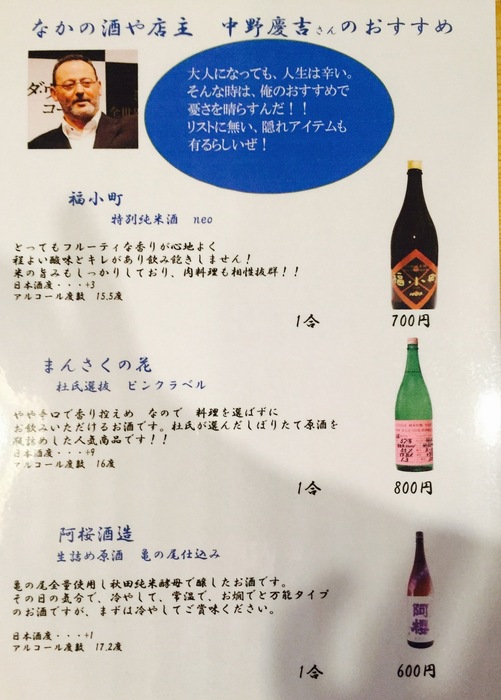 なかの酒や店主 中野慶吉さんのおすすめ
大人になっても、人生は辛い。
そんな時は、俺のおすすめで
憂さを晴らすんだ！！
リストに無い、隠れアイテムも
有るらしいぜ！
福小町
特別純米酒 neo
とってもフルーティな香りが心地よく
程よい酸味とキレがあり飲み飽きしません！
米の旨みもしっかりしており、肉料理も相性抜群！！
日本酒度・・・+3
アルコール度数 15.5度
1合 700円
まんさくの花
杜氏選抜 ピンクラベル
やや辛口で香り控えめ なので 料理を選ばずに
お飲みいただけるお酒です。杜氏が選んだしぼりたて原酒を
瓶詰めした人気商品です！！
日本酒度・・・+9
アルコール度数 16度
1合 800円
阿桜酒造
生詰め原酒 亀の尾仕込み
亀の尾全量使用し秋田純米酵母で醸したお酒です。
その日の気分で、冷やして、常温で、お燗でと万能タイプ
のお酒ですが、まずは冷やしてご賞味ください。
日本酒度・・・+1
アルコール度数 17.2度
阿櫻
1合 600円